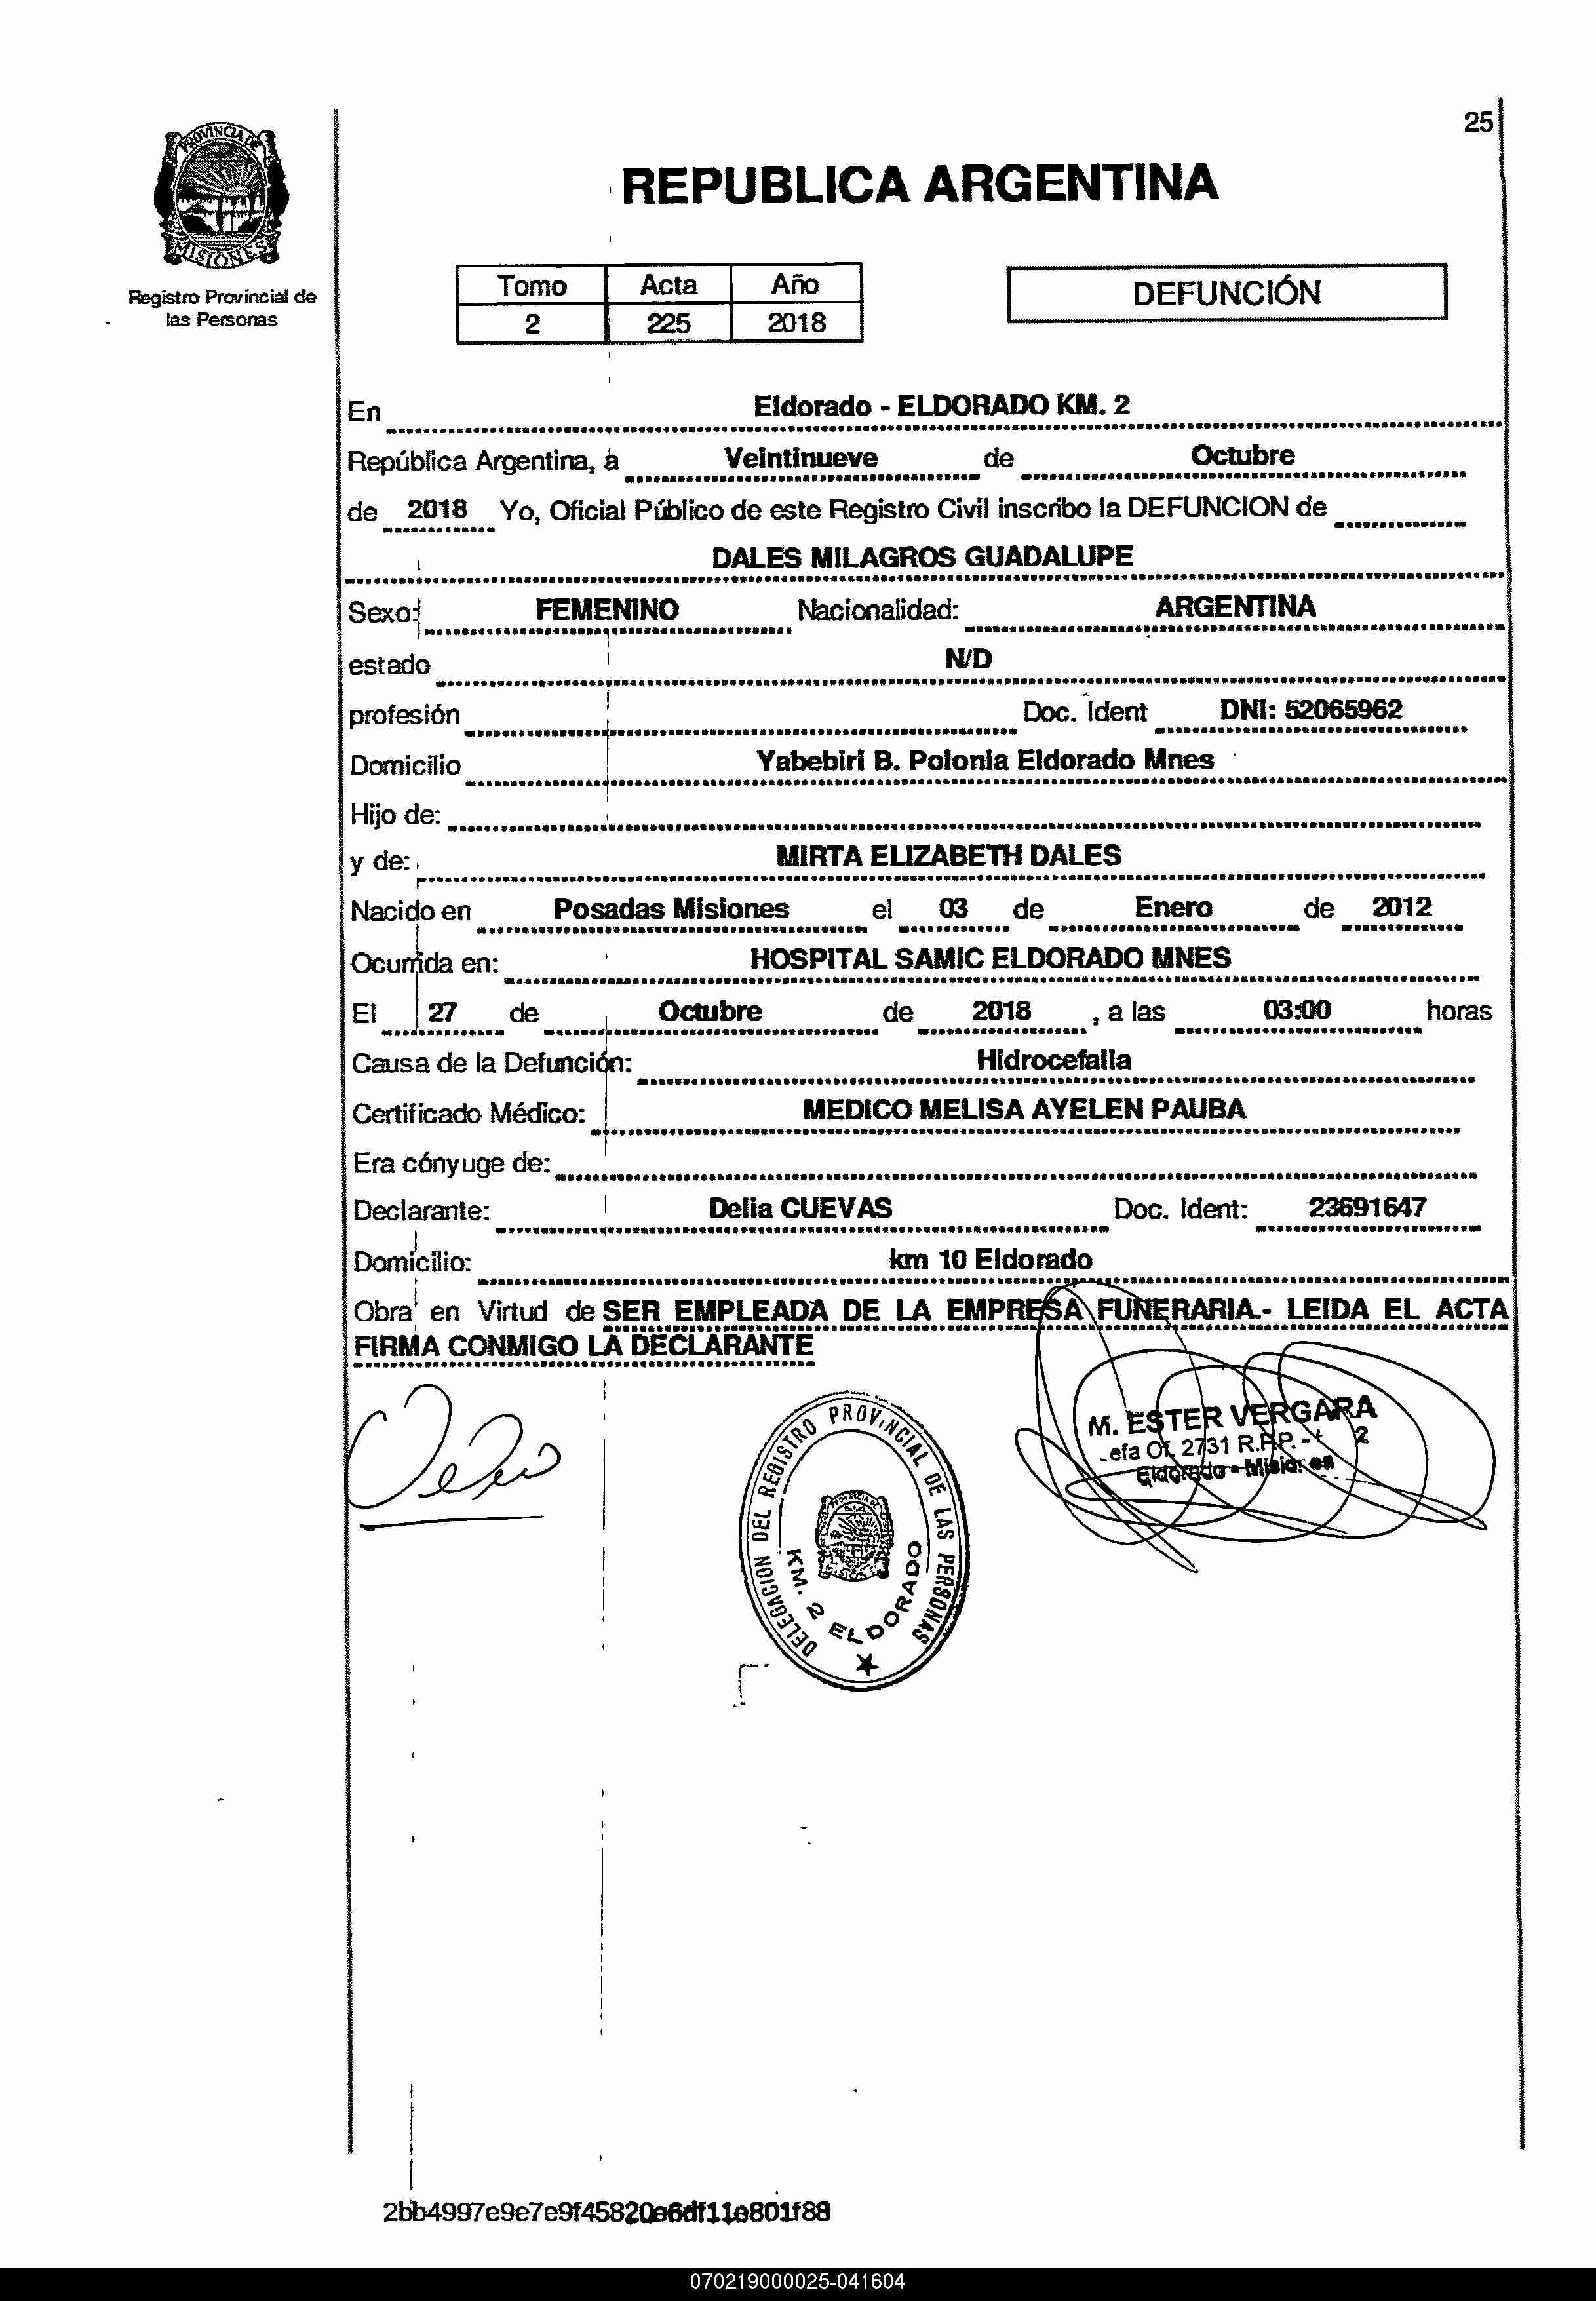 25
PROVINCIA DE
MISIONES
Registro Provincial de
las Personas
REPUBLICA ARGENTINA
Tomo Acta Año
2 225 2018
DEFUNCIÓN
En Eldorado - ELDORADO KM. 2
República Argentina, a Veintinueve de Octubre
de 2018 Yo, Oficial Público de este Registro Civil inscribo la DEFUNCION de
DALES MILAGROS GUADALUPE
Sexo: FEMENINO Nacionalidad: ARGENTINA
estado N/D
profesión Doc. Ident DNI: 52065962
Domicilio Yabebiri B. Polonia Eldorado Mnes
Hijo de:
y de: MIRTA ELIZABETH DALES
Nacido en Posadas Misiones el 03 de Enero de 2012
Ocurrida en: HOSPITAL SAMIC ELDORADO MNES
El 27 de Octubre de 2018 , a las 03:00 horas
Causa de la Defunción: Hidrocefalia
Certificado Médico: MEDICO MELISA AYELEN PAUBA
Era cónyuge de:
Declarante: Delia CUEVAS Doc. Ident: 23691647
Domicilio: km 10 Eldorado
Obra en Virtud de SER EMPLEADA DE LA EMPRESA FUNERARIA.- LEIDA EL ACTA
FIRMA CONMIGO LA DECLARANTE
DELEGACION DEL REGISTRO PROVINCIAL DE LAS PERSONAS
KM. 2 ELDORADO
M. ESTER VERGARA
efa Of. 2731 R.P.P. - 2
Eldorado - Misiones
2bb4997e9e7e9f45820e6df11e801f88
070219000025-041604